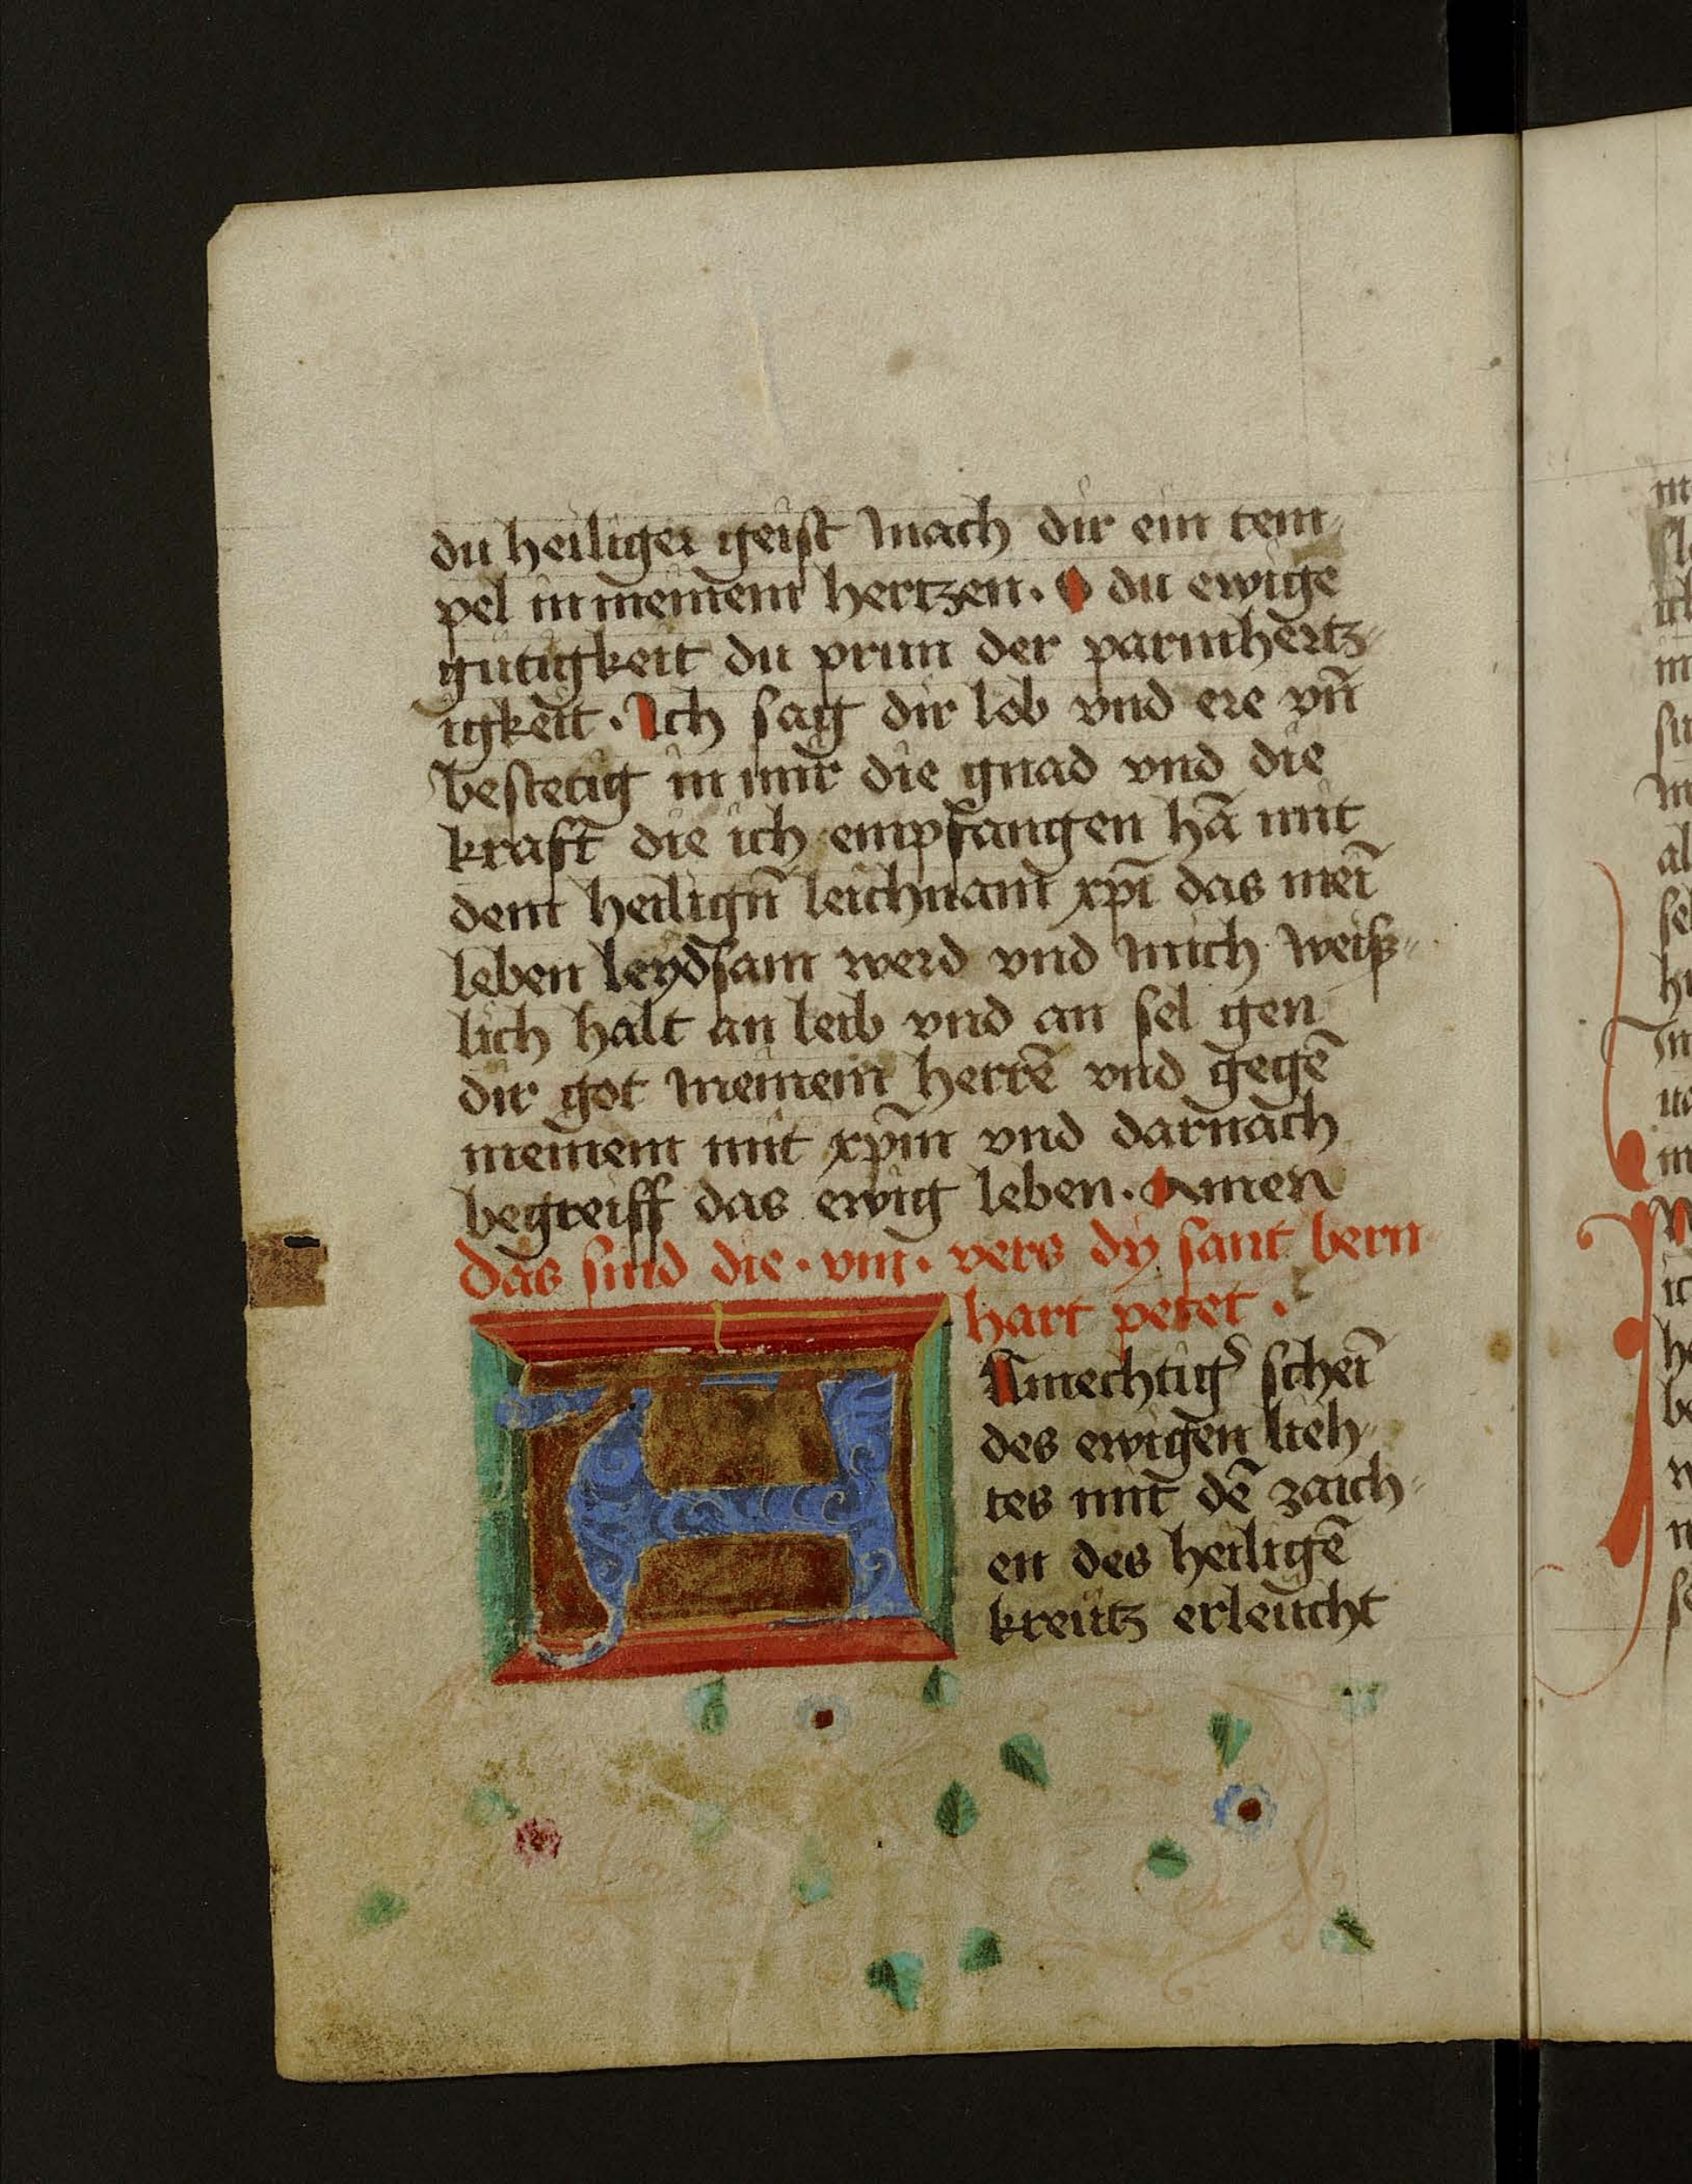 du heiliger geist mach dir ein tem
pel in meinem hertzen. O du ewige
gütigkeit du prun der parmhertz
igkeit. Ich sag dir lob vnd ere vn̄
bestetig in mir die gnad vnd die
kraft die ich empfangen hā mit
dem heilign̄ leichnam xp̄i das mei̅
leben leydsam werd vnd mich weiß
lich halt an leib vnd an sel gen
dir got meinem herrē vnd gegē
meinem mit xp̄m vnd darnach
begreiff das ewig leben. Amen
Das sind die .viij. vers dy sant bern
hart petet.
A Amechtigͬ schei̅
des ewigen lieh
tes mit dē zaich
en des heiligē
kreütz erleucht